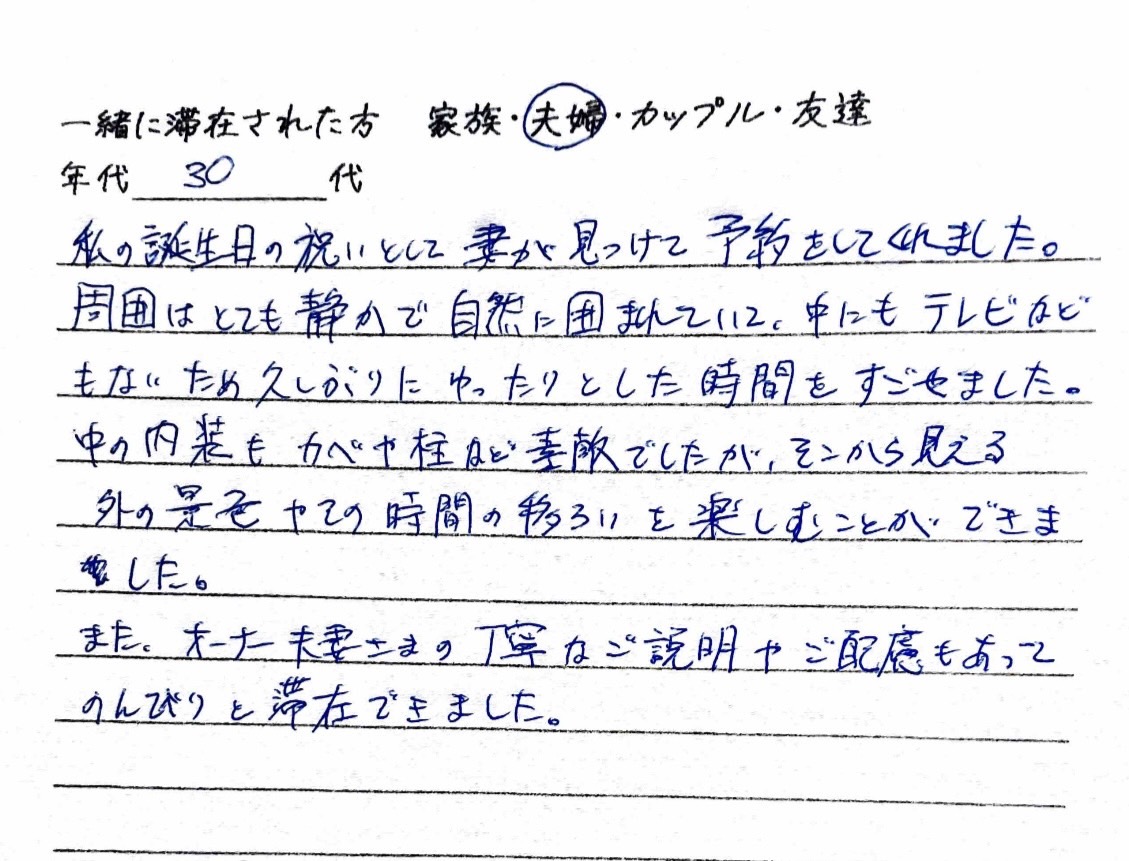 一緒に滞在された方 家族・夫婦・カップル・友達
年代 30 代
私の誕生日の祝いとして妻が見つけて予約をしてくれました。
周囲はとても静かで自然に囲まれていて、中にもテレビなど
もないため久しぶりにゆったりとした時間をすごせました。
中の内装もカベや柱など素敵でしたが、そこから見える
外の景色やその時間の移ろいを楽しむことができま
した。
また、オーナー夫妻さまの丁寧なご説明やご配慮もあって
のんびりと滞在できました。